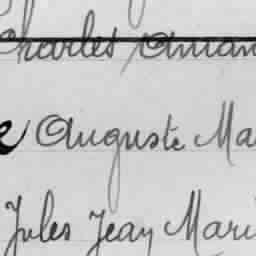 Charles Aman
Auguste Ma
Jules Jean Mari